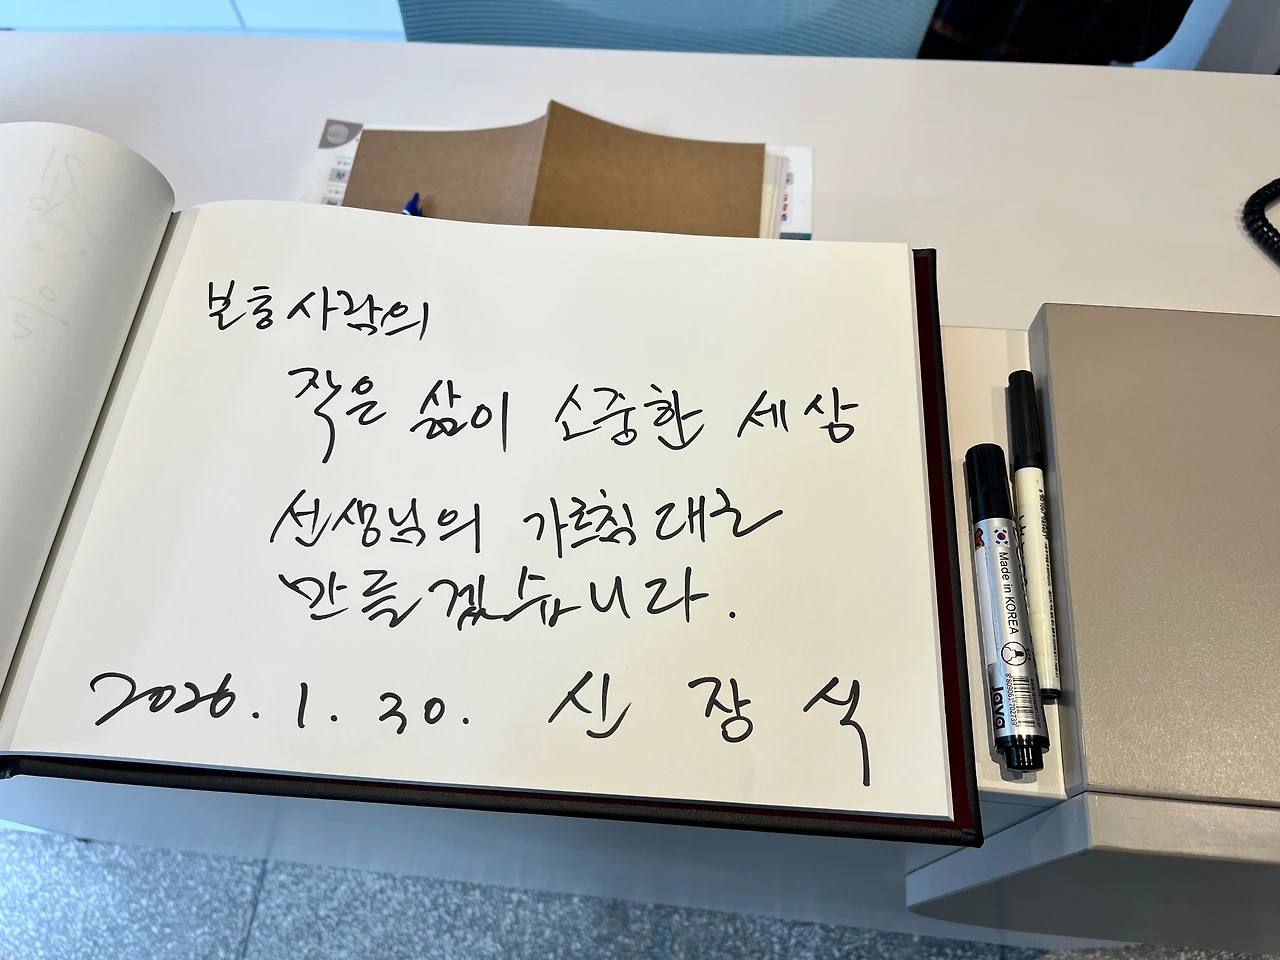 보통사람의
작은 삶이 소중한 세상
선생님의 가르침대로
만들겠습니다.
2026. 1. 30. 신 장 식
Made in KOREA
Java